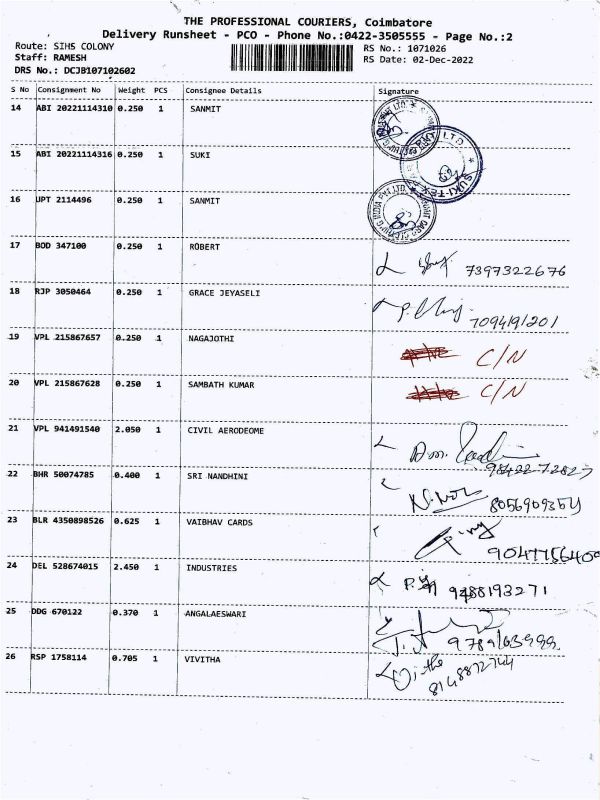 THE PROFESSIONAL COURIERS, Coimbatore
Delivery Runsheet - PCO - Phone No.:0422-3505555 - Page No.:2
Route: SIHS COLONY
RS No.: 1071026
Staff: RAMESH
RS Date: 02-Dec-2022
DRS No.: DCJB107102602
S No Consignment No Weight PCS Consignee Details Signature
14 ABI 20221114310 0.250 1 SANMIT
15 ABI 20221114316 0.250 1 SUKI
16 UPT 2114496 0.250 1 SANMIT
17 BOD 347100 0.250 1 ROBERT 7397322676
18 RJP 3050464 0.250 1 GRACE JEYASELI 7094191201
19 VPL 215867657 0.250 1 NAGAJOTHI C/N
20 VPL 215867628 0.250 1 SAMBATH KUMAR C/N
21 VPL 941491540 2.050 1 CIVIL AERODEOME
22 BHR 50074785 0.400 1 SRI NANDHINI 8056909354
23 BLR 4350898526 0.625 1 VAIBHAV CARDS
24 DEL 528674015 2.450 1 INDUSTRIES 9488193271
25 DDG 670122 0.370 1 ANGALAESWARI
26 RSP 1758114 0.705 1 VIVITHA 8148872744